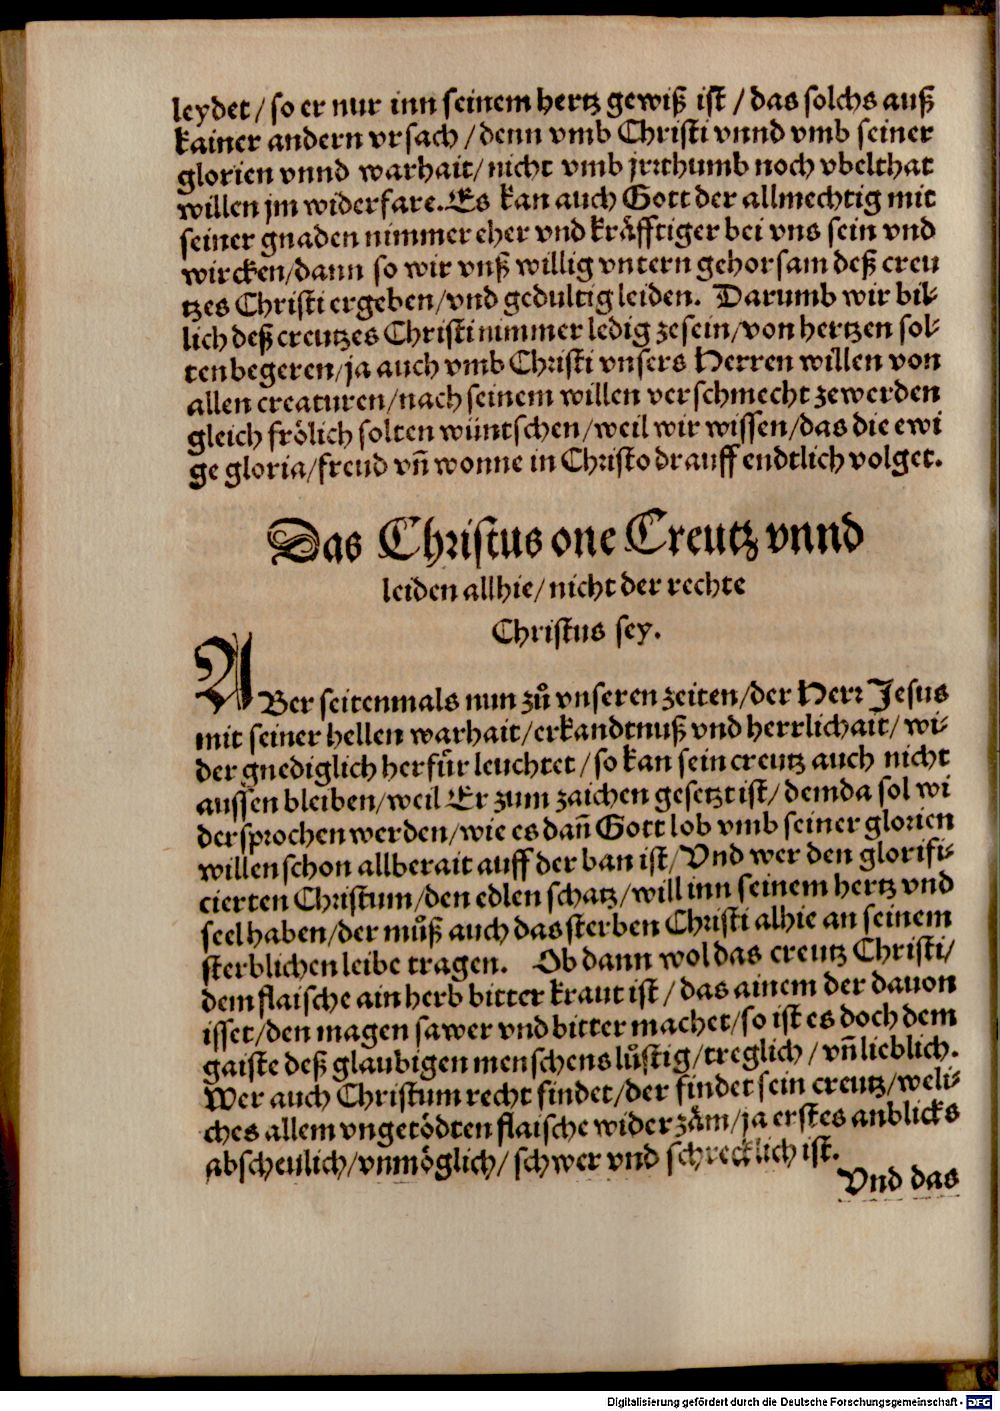 leydet / so er nur inn seinem hertz gewiß ist / das solchs auß
kainer andern vrsach / denn vmb Christi vnnd vmb seiner
glorien vnnd warhait / nicht vmb jrrthumb noch vbelthat
willen jm widerfare. Es kan auch Gott der allmechtig mit
seiner gnaden nimmer eher vnd kräfftiger bei vns sein vnd
wircken / dann so wir vnß willig vntern gehorsam deß creu
tzes Christi ergeben / vnd gedultig leiden. Darumb wir bil-
lich deß creutzes Christi nimmer ledig ze sein / von hertzen sol-
ten begeren / ja auch vmb Christi vnsers Herren willen von
allen creaturen / nach seinem willen verschmecht zewerden
gleich frölich solten wüntschen / weil wir wissen / das die ewi
ge gloria / freud vn̄ wonne in Christo drauff endtlich volget.
Das Christus one Creutz vnnd
leiden allhie / nicht der rechte
Christus sey.
ABer seitenmals nun zů vnseren zeiten / der Herr Jesus
mit seiner hellen warhait / erkandtnuß vnd herrlichait / wi-
der gnediglich herfůr leuchtet / so kan sein creutz auch nicht
aussen bleiben / weil Er zum zaichen gesetzt ist / dem da sol wi
dersprochen werden / wie es dan̄ Gott lob vmb seiner glorien
willen schon allberait auff der ban ist / Vnd wer den glorifi-
cierten Christum / den edlen schatz / will inn seinem hertz vnd
seel haben / der můß auch das sterben Christi alhie an seinem
sterblichen leibe tragen. Ob dann wol das creutz Christi /
dem flaische ain herb bitter kraut ist / das ainem der dauon
isset / den magen sawer vnd bitter machet / so ist es doch dem
gaiste deß glaubigen menschens lůstig / treglich / vn̄ lieblich.
Wer auch Christum recht findet / der findet sein creutz / weli-
ches allem vngetödten flaische wider zäm / ja erstes anblicks
abscheulich / vnmöglich / schwer vnd schrecklich ist.
Vnd das
Digitalisierung gefördert durch die Deutsche Forschungsgemeinschaft - DFG